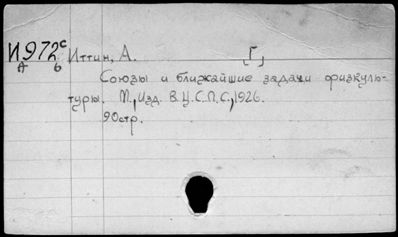 И972с Иттин, А. [Г]
А 6
Союзы и ближайшие задачи физкуль-
туры. М., Изд. В.Ц.С.П.С., 1926.
90стр.